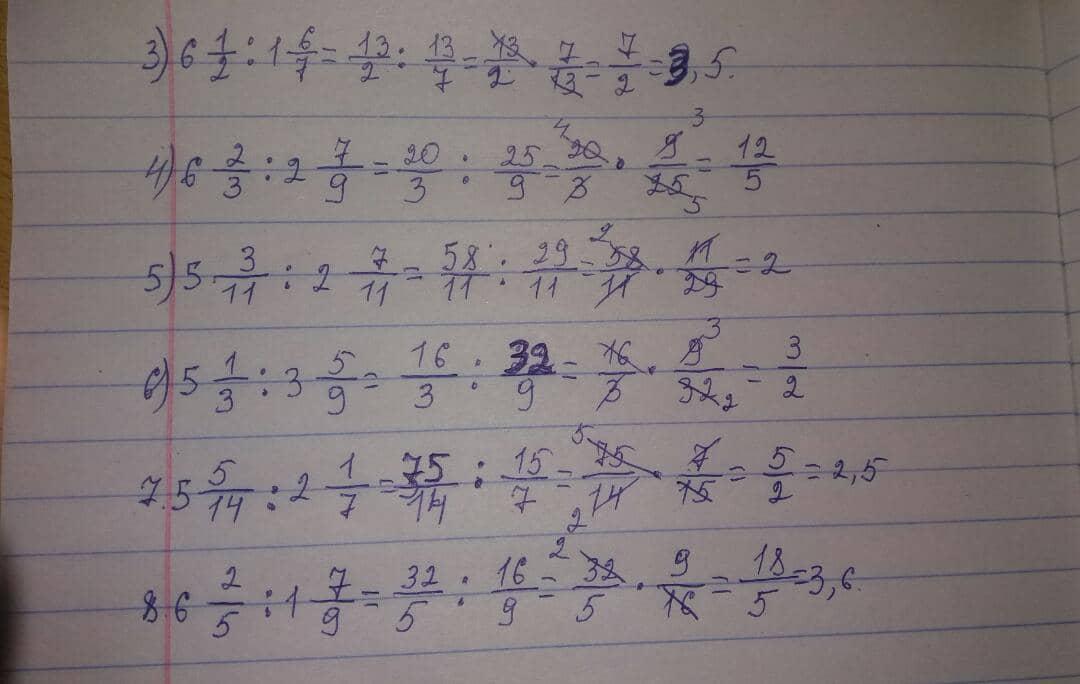 3) 6 1/2 : 1 6/7 = 13/2 : 13/7 = 13/2 · 7/13 = 7/2 = 3,5.
4) 6 2/3 : 2 7/9 = 20/3 : 25/9 = 4 20/3 · 9 3/25 5 = 12/5
5) 5 3/11 : 2 7/11 = 58/11 : 29/11 = 2 58/11 · 11/29 = 2
6) 5 1/3 : 3 5/9 = 16/3 : 32/9 = 16/3 · 9 3/32 2 = 3/2
7. 5 5/14 : 2 1/7 = 75/14 : 15/7 = 5 75/14 2 · 7/15 = 5/2 = 2,5
8. 6 2/5 : 1 7/9 = 32/5 : 16/9 = 2 32/5 · 9/16 = 18/5 = 3,6.